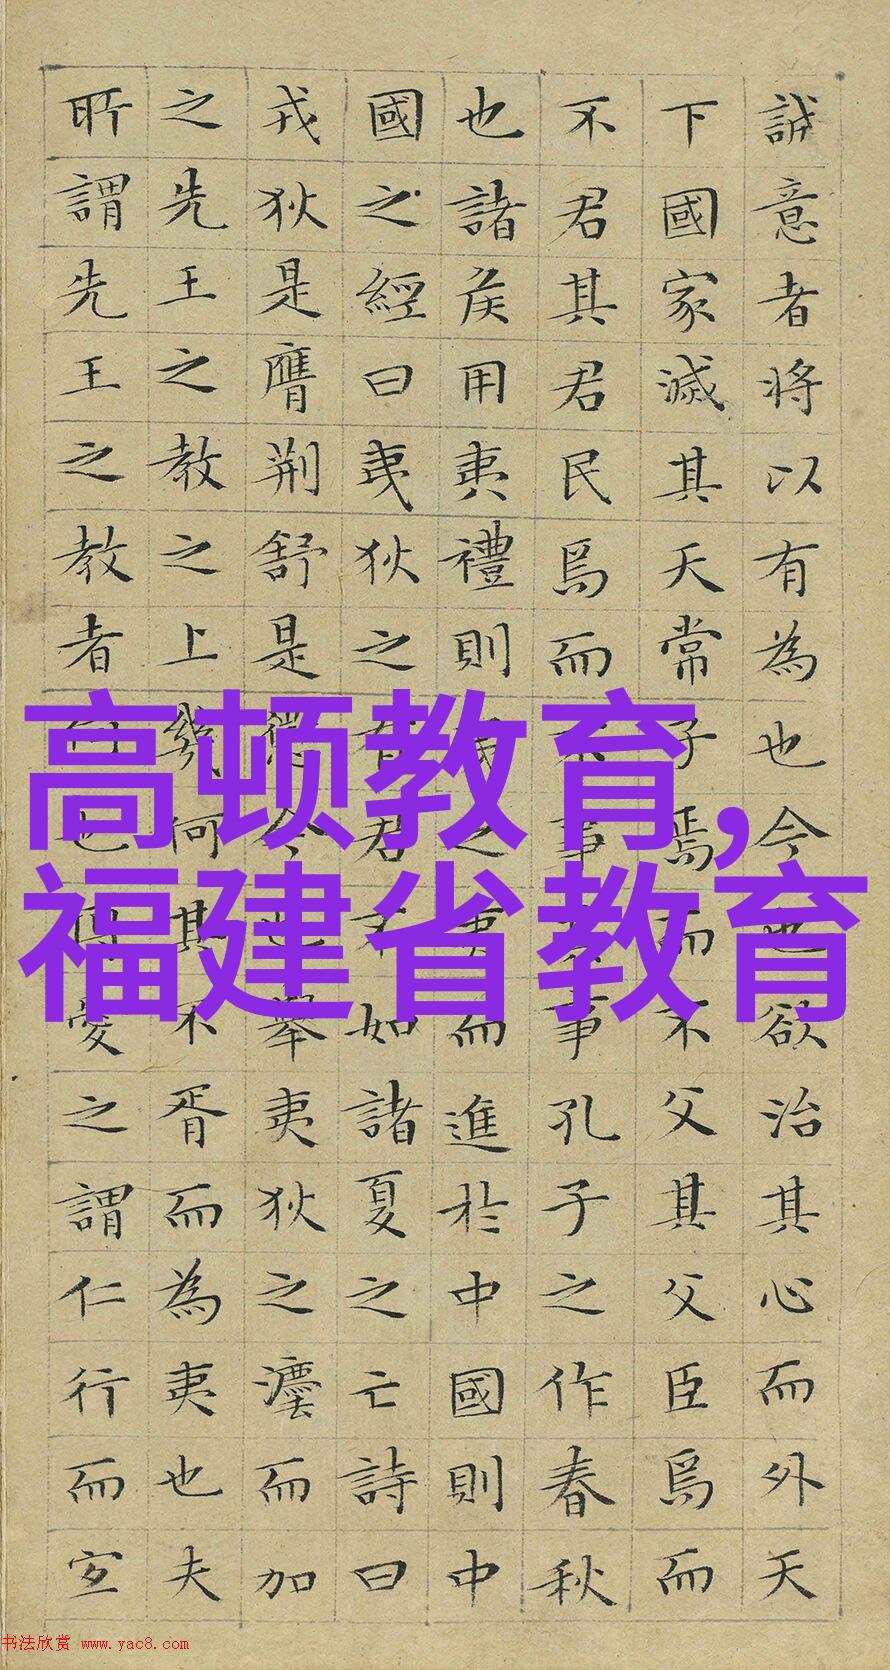 誠意者將以有為也今也欲治其心而外天
下國家滅其天常子焉而不父其父臣焉而
不君其君民焉而不事其事孔子之作春秋
也諸侯用夷禮則夷之夷而進於中國則中
國之經曰夷狄之有君不如諸夏之亡詩曰
戎狄是膺荆舒是懲今也舉夷狄之灋而加
之先王之教之上幾何其不胥而為夷也夫
所謂先王之教者何也博愛之謂仁行而宜
高顿教育,
福建省教育
书法欣赏 www.yac8.com